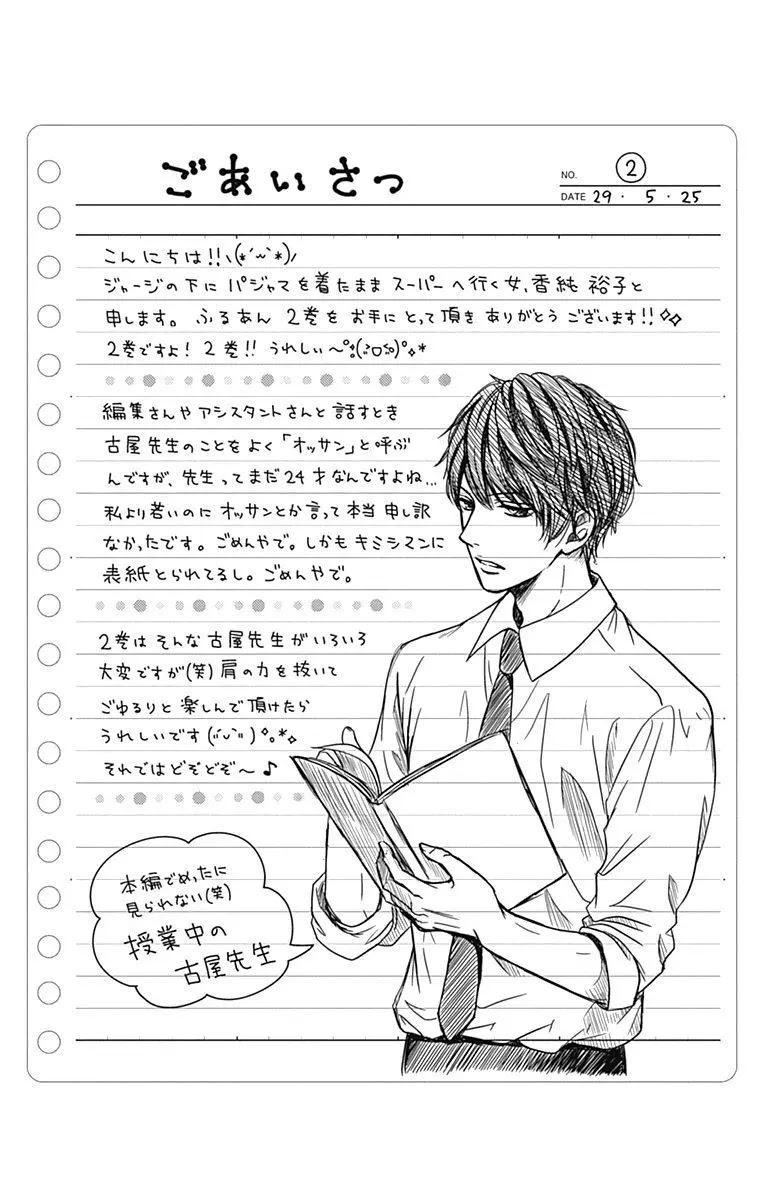 ごあいさつ
NO. ②
DATE 29・5・25
こんにちは!!ヽ(*´∽`*)ﾉ
ジャージの下に パジャマを着たまま スーパーへ行く女、香純 裕子と
申します。ふるあん 2巻を お手に とって頂き ありがとう ございます!!
2巻ですよ! 2巻!! うれしい〜
編集さんや アシスタントさんと 話すとき
古屋先生のことを よく「オッサン」と呼ぶ
んですが、先生ってまだ24才なんですよね…
私より若いのに オッサンとか言って本当 申し訳
なかったです。ごめんやで。しかもキミシマンに
表紙とられてるし。ごめんやで。
2巻は そんな 古屋先生が いろいろ
大変ですが(笑) 肩の力を抜いて
ごゆるりと 楽しんで頂けたら
うれしいです
それではどぞどぞ〜♪
本編でめったに
見られない(笑)
授業中の
古屋先生